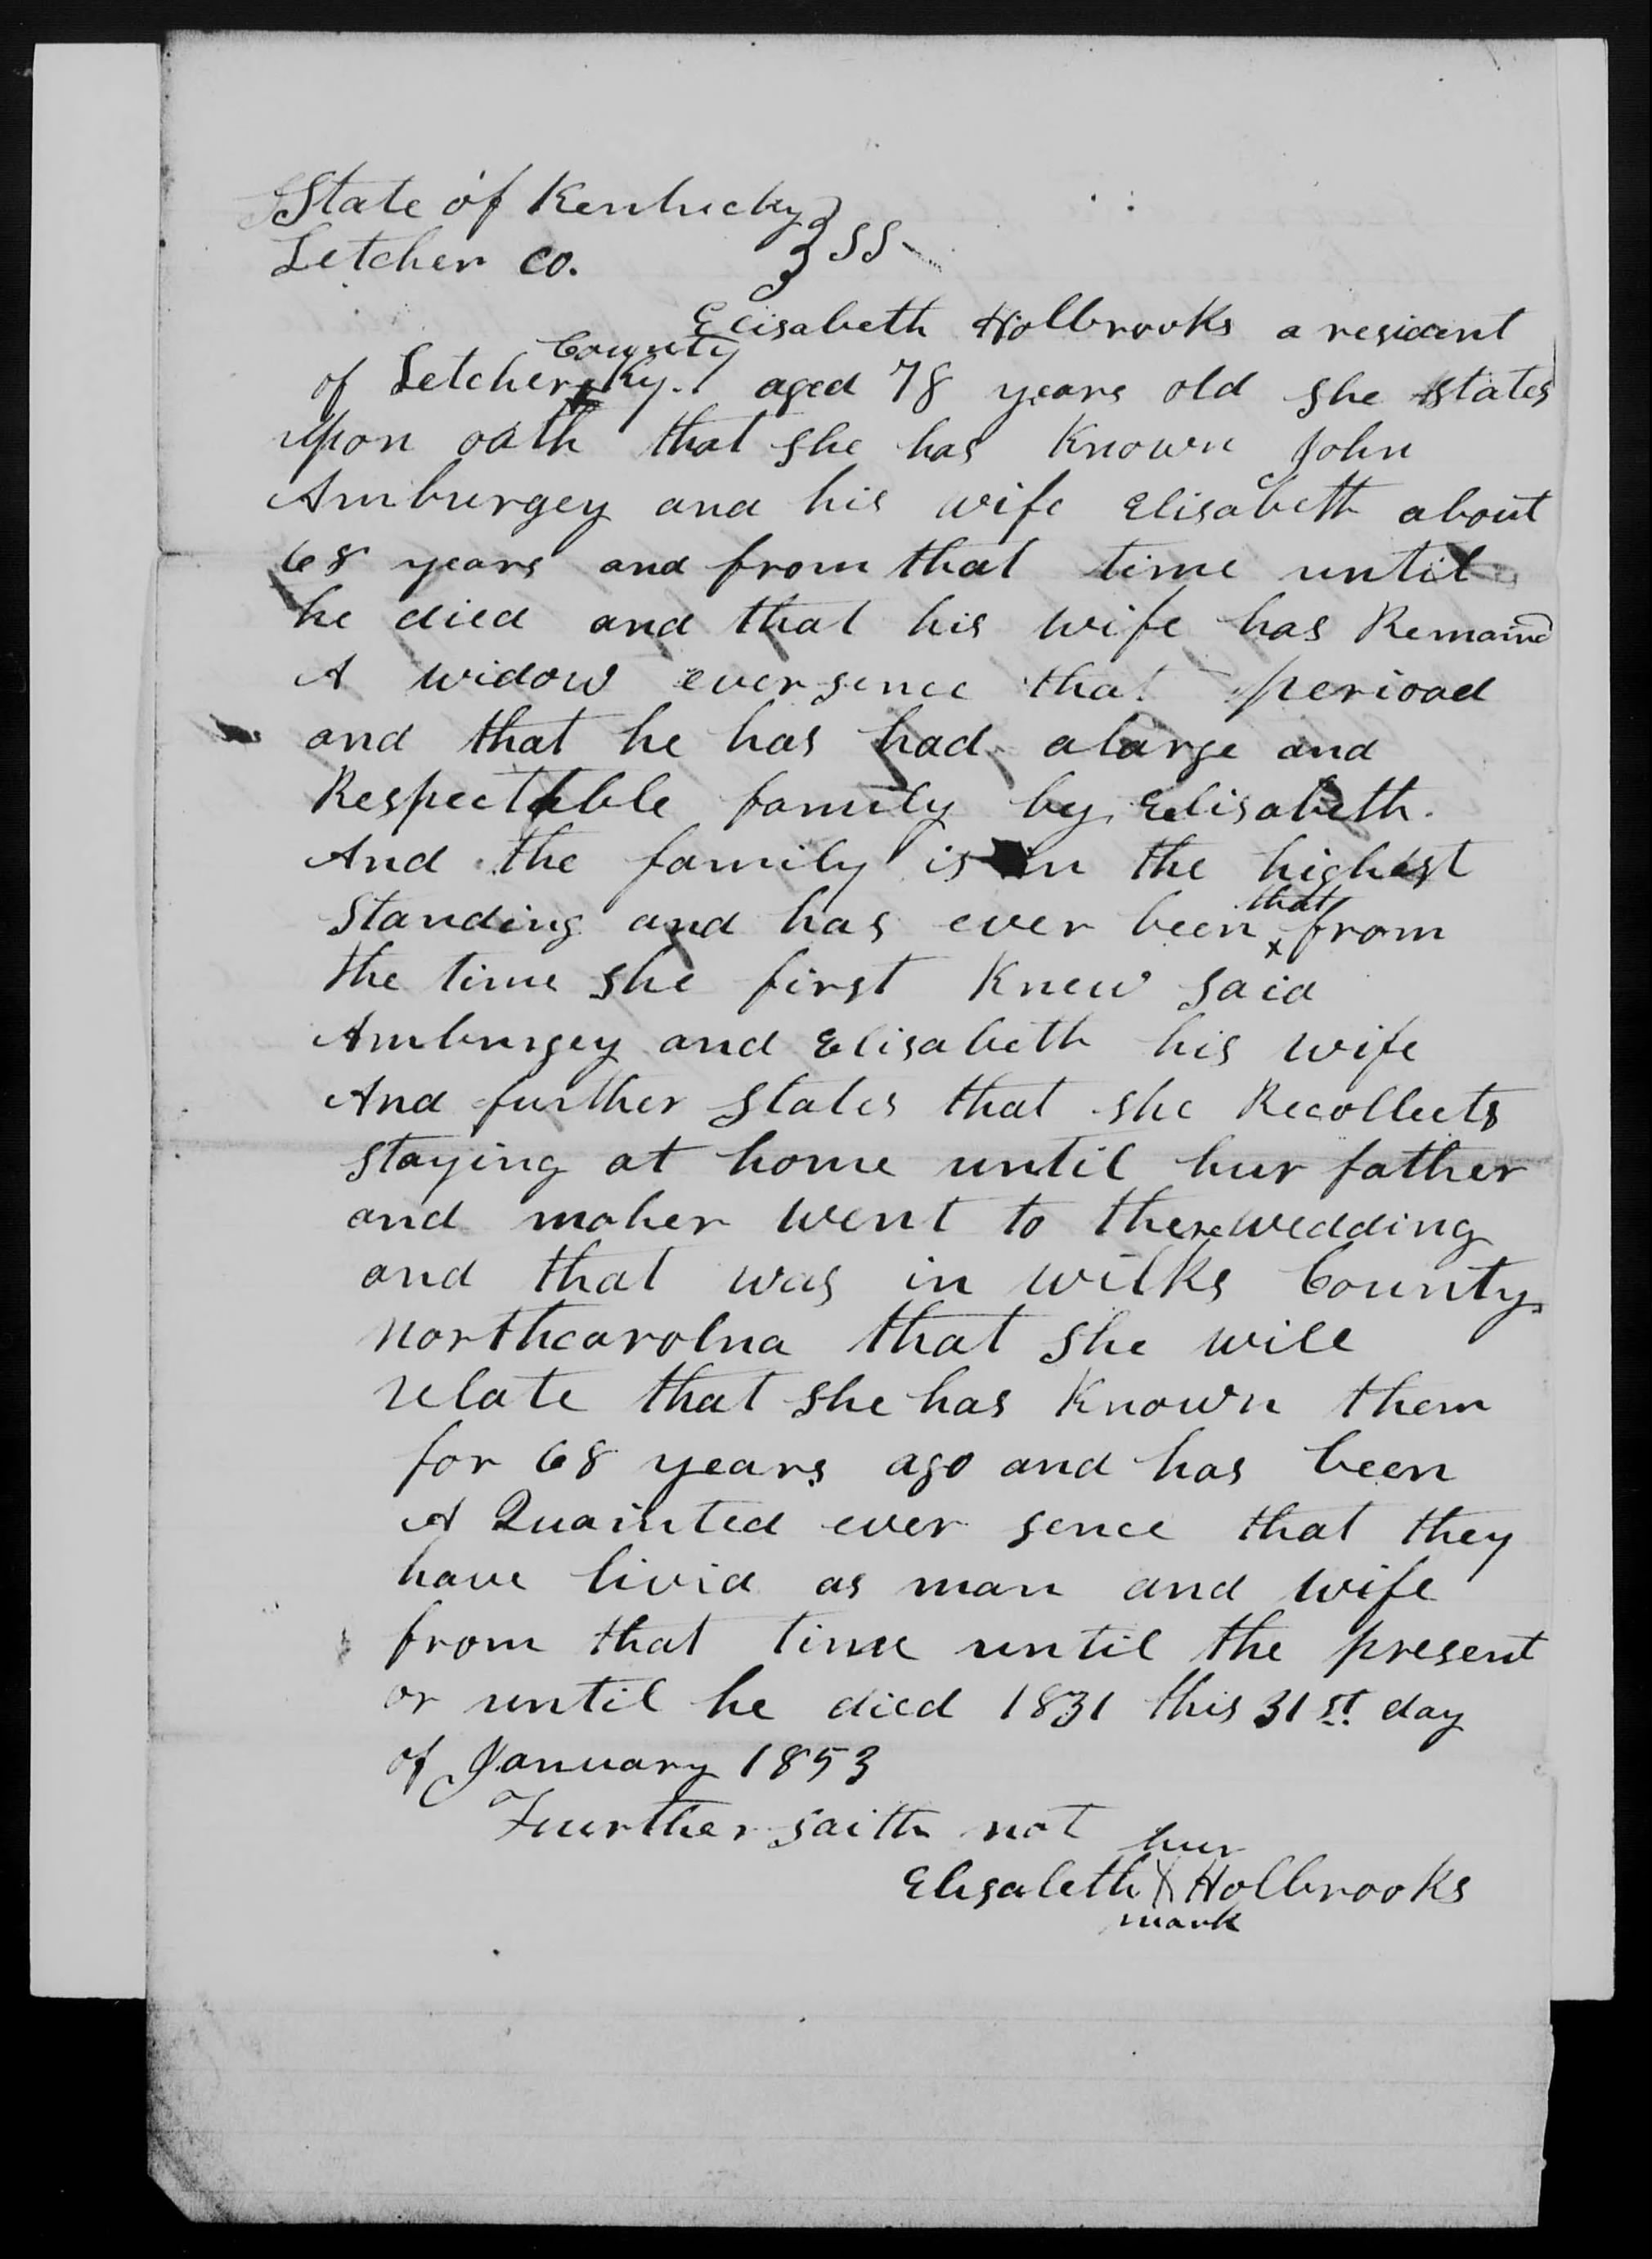 State of Kentucky } SS
Letcher Co.
Elisabeth Holbrooks a resident
County
of Letcher x Ky. aged 78 years old she states
upon oath that she has Known John
Amburgey and his wife Elisabeth about
68 years and from that time until
he died and that his wife has Remaind
A widow ever sence that perioad
and that he has had a large and
Respectable family by Elisabeth.
And the family is in the highest
that
Standing and has ever been x from
the time she first Knew said
Amburgey and Elisabeth his wife
And further States that she Recollects
staying at home until hur father
and moher went to there wedding
and that was in wilks County
northcarolna that she will
relate that she has Known them
for 68 years ago and has been
A Quainted ever sence that they
have livid as man and wife
from that time until the present
or until he died 1831 this 31st day
of January 1853
Further saith not
hur
Elisabeth X Holbrooks
mark